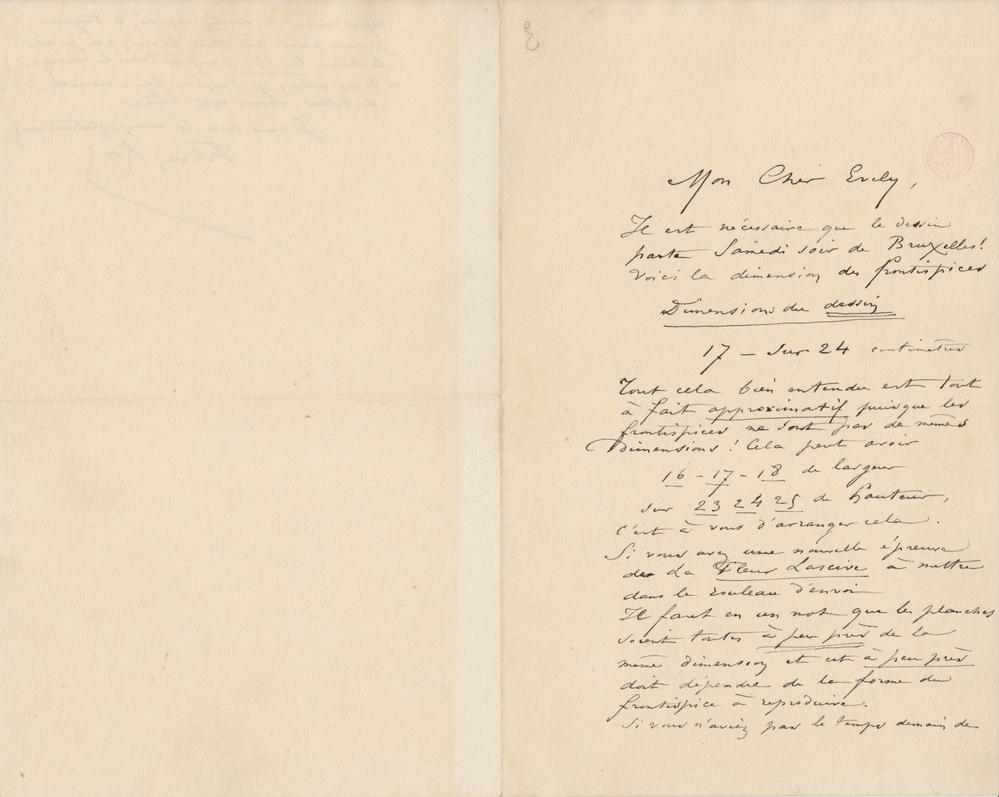 Mon Cher Evely,
Il est nécessaire que le dessin
parte Samedi soir de Bruxelles!
Voici la dimension des frontispices
Dimensions du dessin
17 — sur 24 centimètres
Tout cela bien entendu est tout
à fait approximatif puisque les
frontispices ne sont pas de mêmes
Dimensions! Cela peut avoir
16 - 17 - 18 de largeur
sur 23 24 25 de hauteur,
c'est à vous d'arranger cela.
Si vous avez une nouvelle épreuve
de La Fleur Lascive à mettre
dans le rouleau d'envoi
Il faut en un mot que les planches
soient toutes à peu près de la
même dimension et cet à peu près
doit dépendre de la forme du
frontispice à reproduire.
Si vous n'aviez pas le temps demain de